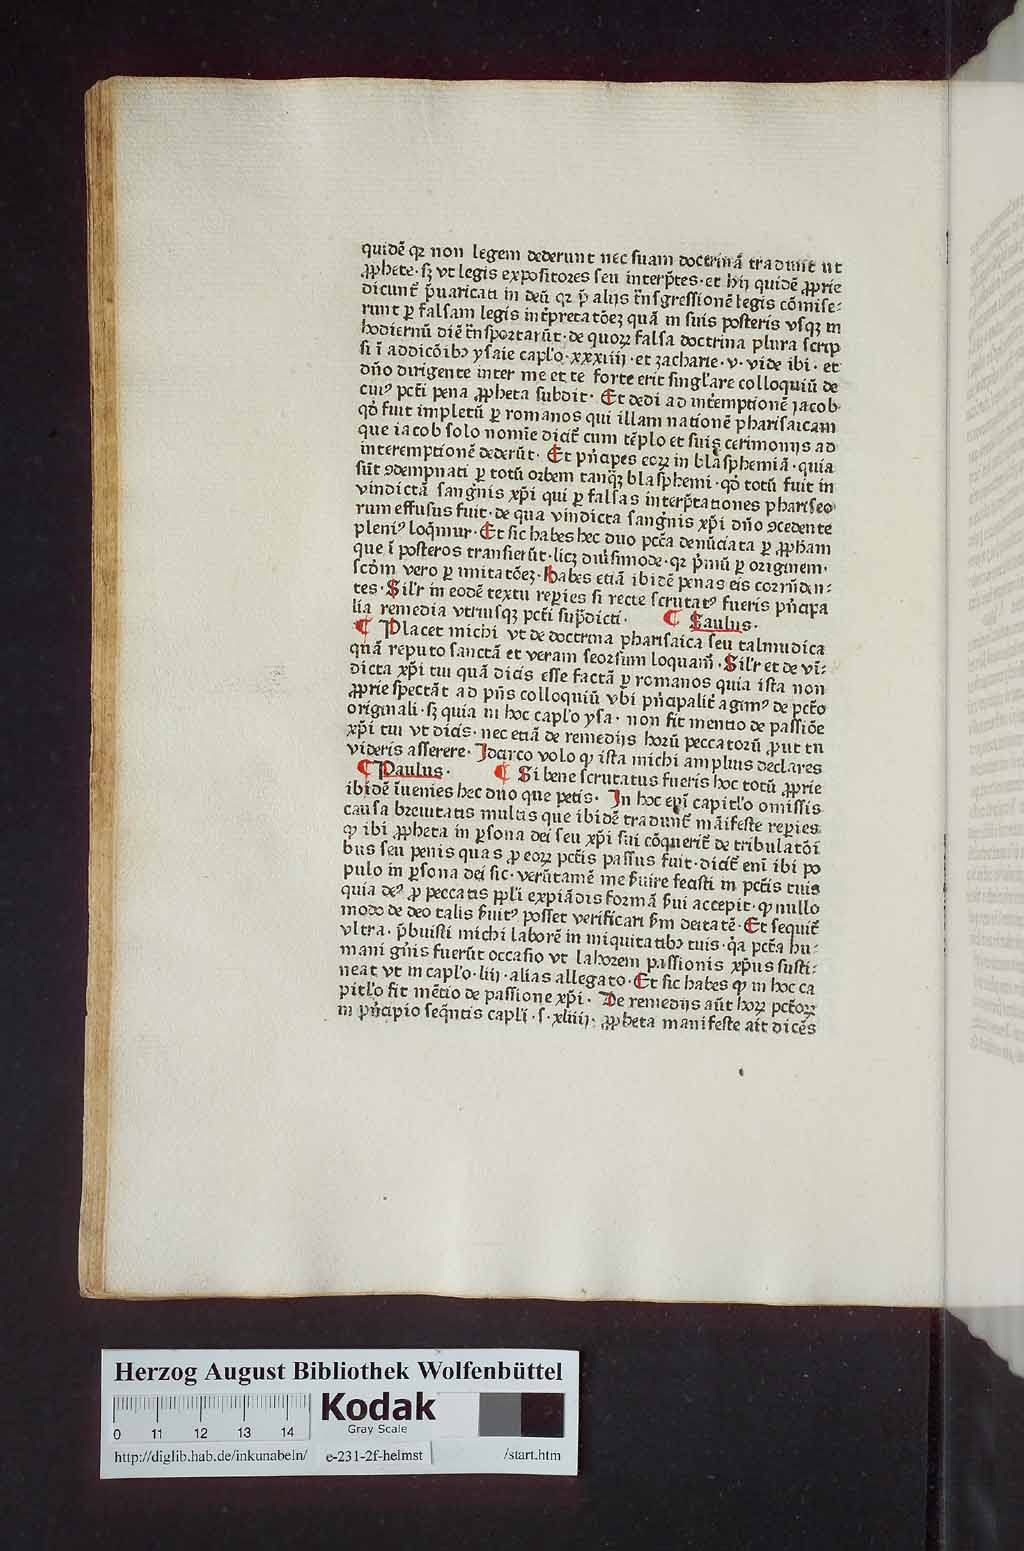 quidē qꝫ non legem dederunt nec suam doctrinā tradunt ut
ꝓphete· sꝫ vt legis expositores seu interp̄tes· et hij quidē ꝓprie
dicunt̄ p̄uaricati in deū qꝫ p̄ alijs t̄nsgressionē legis cōmise⸗
runt ꝑ falsam legis int̄pretatōeꝫ quā in suis posteris vsqꝫ in
hodiernū diē t̄nsportarūt· de quoꝝ falsa doctrina plura scrip
si ī addicōibꝰ ysaie capl̓o· xxxiiij· et zacharie· v· vide ibi· et
dn̄o dirigente inter me et te forte erit singl̓are colloquiū de
cuiꝰ pct̄i pena ꝓpheta subdit· Et dedi ad int̄emptionē iacob·
qd̓ fuit impletū ꝑ romanos qui illam nationē pharisaicam
que iacob solo nomīe dicit̄ cum tēplo et suis cerimonijs ad
interemptionē dederūt· Et pn̓cipes eoꝝ in blasphemiā· quia
sūt ꝯdempnati ꝑ totū orbem tanqꝫ blasphemi· qd̓ totū fuit in
vindictā sang̓nis xp̄i qui ꝑ falsas interp̄tationes phariseo
rum effusus fuit· de qua vindicta sang̓nis xp̄i dn̄o ꝯcedente
pleniꝰ loq̄mur· Et sic habes hec duo pcc̄a denūciata ꝑ ꝓph̄am
que ī posteros transierūt· licꝫ diuīsimode· qꝫ p̓mū ꝑ originem·
scd̓m vero ꝑ imitatōeꝫ· Habes etiā ibidē penas eis corrn̄den⸗
tes· Sil̓r in eodē textu reꝑies si recte scrutatꝰ fueris pn̓cipa
lia remedia vtriusqꝫ pct̄i sup̄dicti· ¶ Saulus·
¶ Placet michi vt de doctrina pharisaica seu talmudica
quā reputo sanctā et veram seorsum loquam̄· Sil̓r et de vī⸗
dicta xp̄i tui quā dicis esse factā ꝑ romanos quia ista non
ꝓprie spectāt ad pn̄s colloquiū vbi pn̓cipalit̄ agimꝰ de pct̄o
originali· sꝫ quia in hoc capl̓o ysa· non fit mentio de passiōe
xp̄i tui vt dicis· nec etiā de remedijs horū peccatorū ꝓut tu
videris asserere· Idcirco volo ꝙ ista michi amplius declares
¶ Paulus· ¶ Si bene scrutatus fueris hoc totū ꝓprie
ibidē īuenies hec duo que petis· In hoc eni̅ capitl̓o omissis
causa breuitatis multis que ibidē tradunt̄ māifeste reꝑies
ꝙ ibi ꝓpheta in ꝑsona dei seu xp̄i sui cōquerit̄ de tribulatōi
bus seu penis quas ꝓ eoꝝ pct̄is passus fuit· dicit̄ eni̅ ibi po
pulo in ꝑsona dei sic· verūtamē me s̓uire fecisti in pct̄is tuis
quia deꝰ ꝓ peccatis ppl̓i expiādis formā s̓ui accepit· ꝙ nullo
modo de deo talis s̓uitꝰ posset verificari s̓m deitatē· Et sequit̄
vltra· p̄buisti michi laborē in iniquitatibꝰ tuis· qͣa pct̄a hu⸗
mani gn̓is fuerūt occasio vt laborem passionis xp̄us susti⸗
neat vt in capl̓o· liij· alias allegato· Et sic habes ꝙ in hoc ca
pitl̓o fit mētio de passione xp̄i· De remedijs aūt hoꝝ pct̄oꝝ
in pn̓cipio seqn̄tis capl̓i· s· xliiij· ꝓpheta manifeste ait dicēs
Herzog August Bibliothek Wolfenbüttel
0 11 12 13 14
Kodak
Gray Scale
http://diglib.hab.de/inkunabeln/ e-231-2f-helmst /start.htm